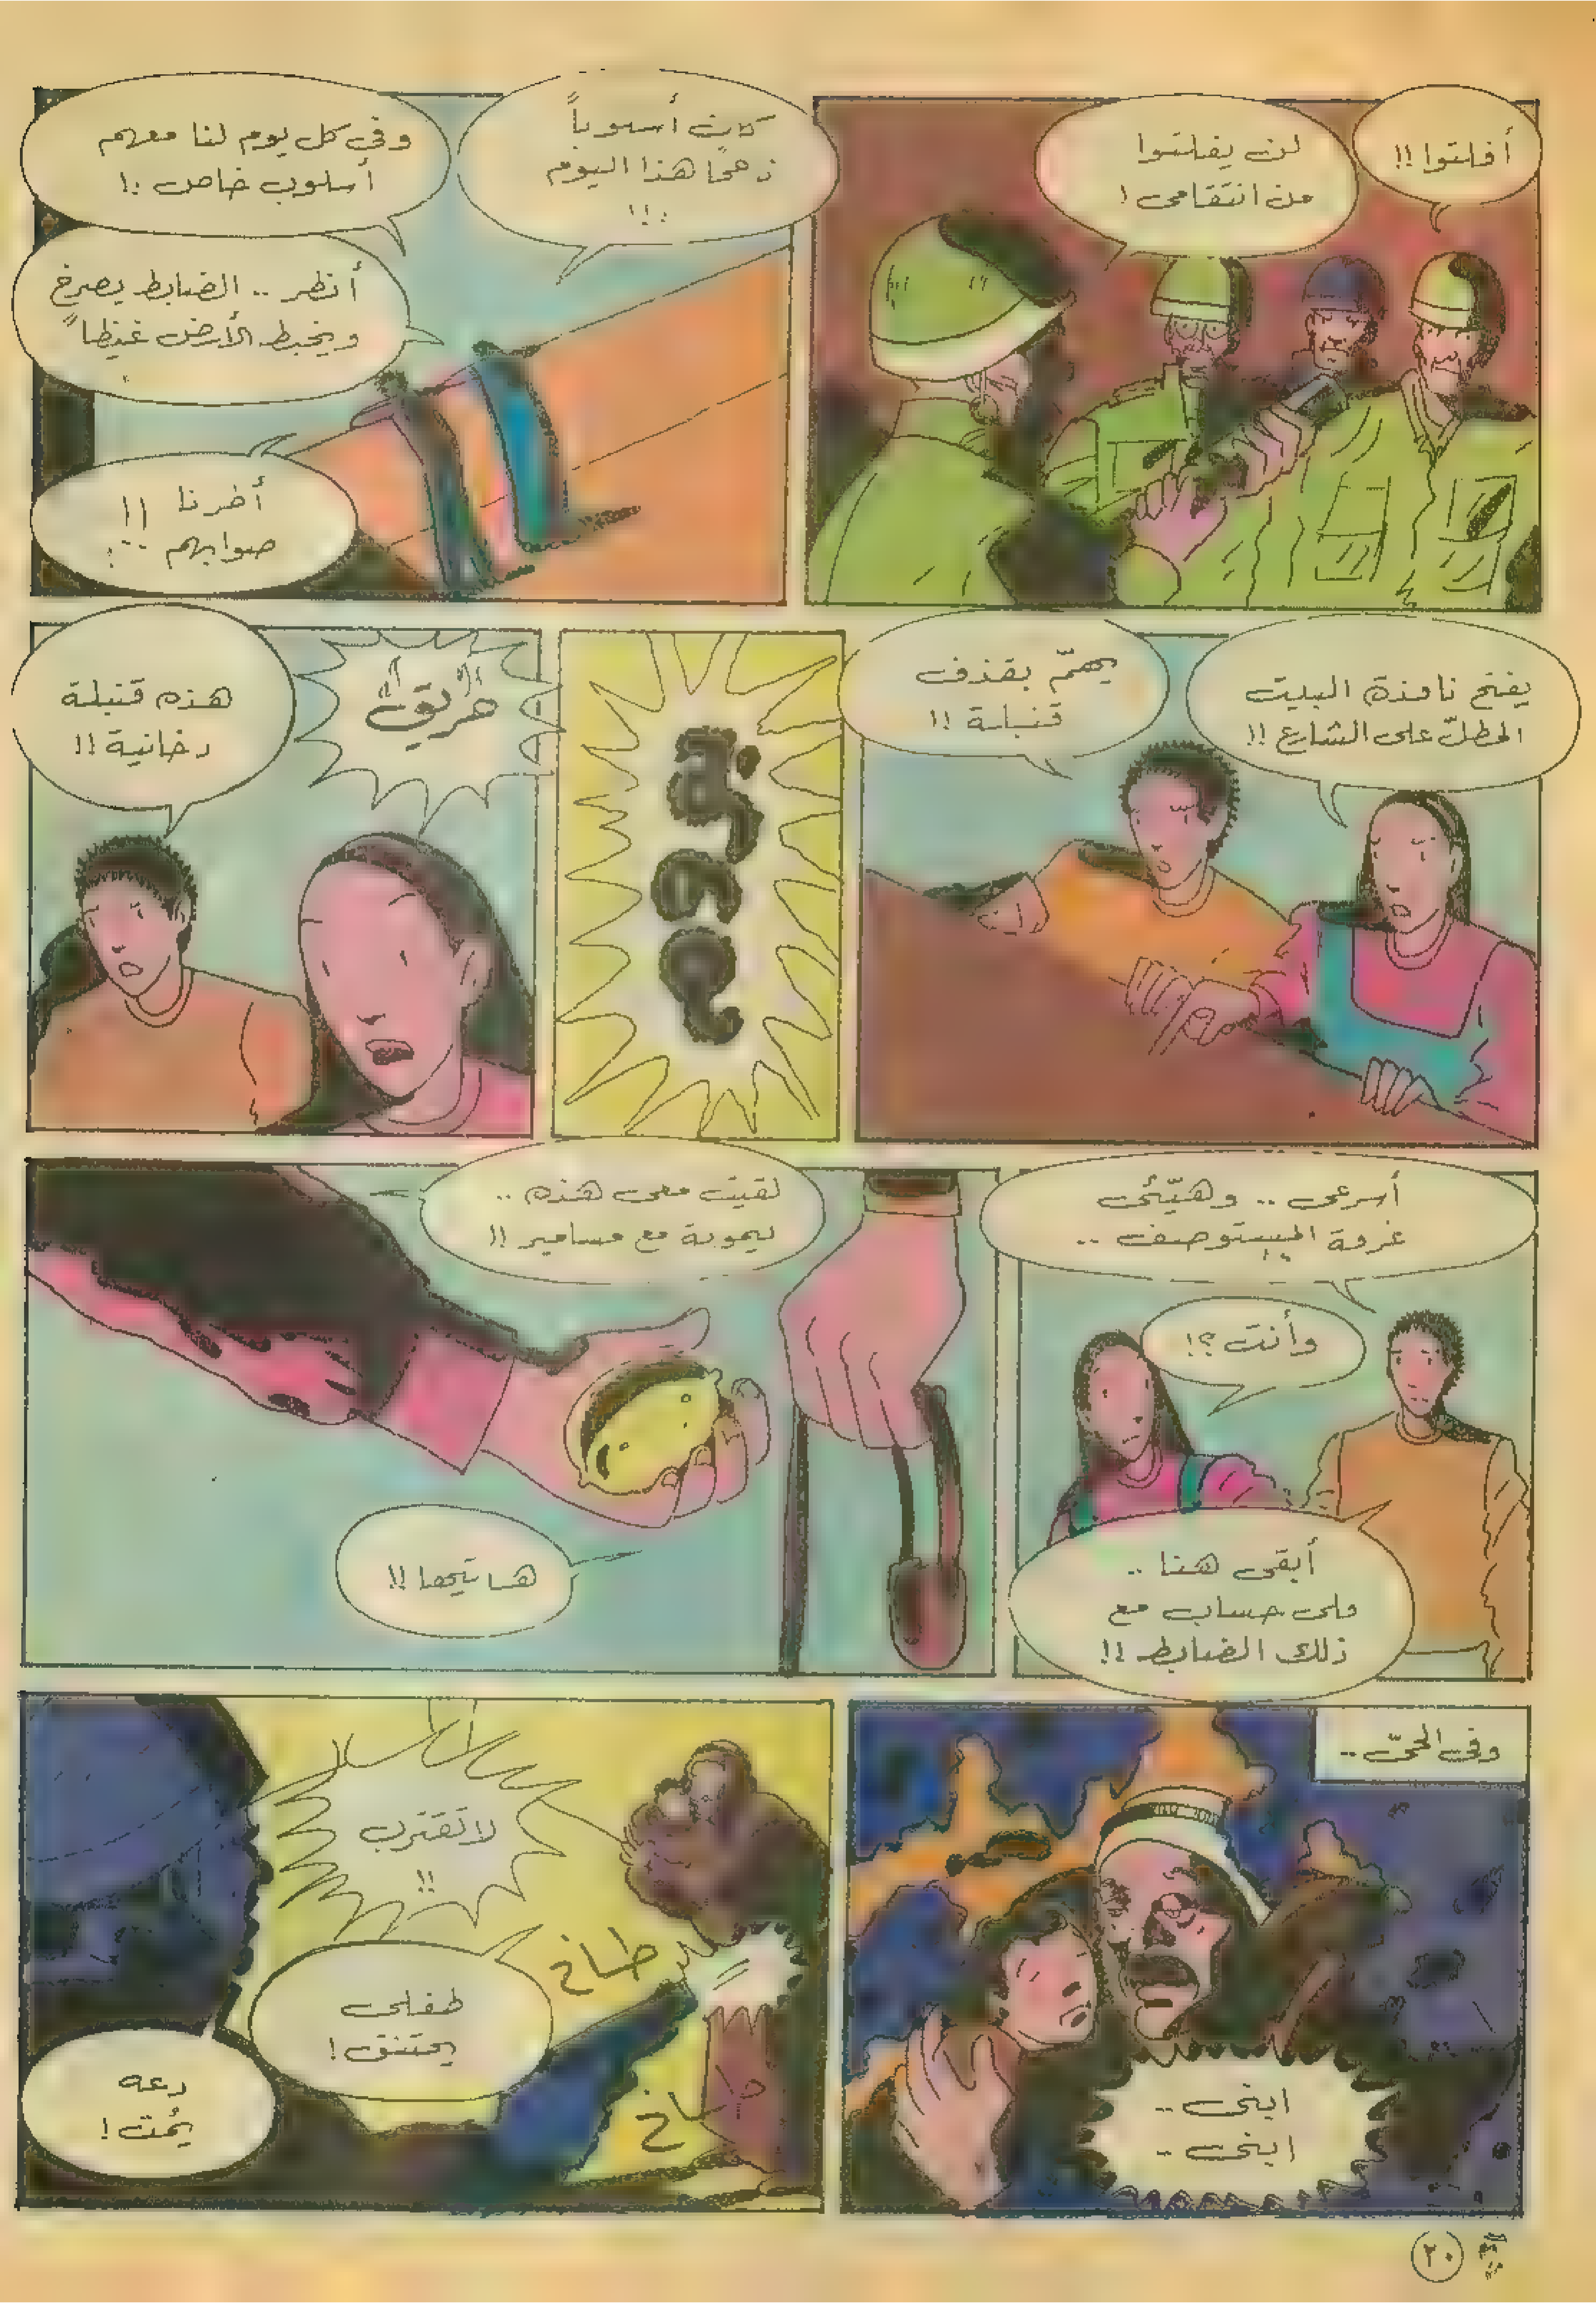 أفلتوا !!
لن يفلتوا
من انتقامى !
كان أسبوعاً
هذا اليوم
!!!
وفى كل يوم لنا معهم
أسلوب خاص !!
أنظر .. الضابط يصرخ
ويخبط الأرض غيظاً
أطرنا
صوابهم !!
يفتح نافذة البيت
المطلّ على الشارع !!
يهمّ بقذف
قنبلة !!
حريق !!
هذه قنبلة
دخانية !!
أسرعى .. وهيّئى
غرفة المستوصف ..
وأنت ؟!
أبقى هنا ..
فلى حساب مع
ذلك الضابط !!
لقيت معى هذه ..
ليمونة مع مسامير !!
هاتيها !!
وفى الحىّ ..
ابنى ..
ابنى ..
لا تقترب
!!
طاخ
طفلى
يختنق !
طاخ
دعه
يُمت !
٢٠